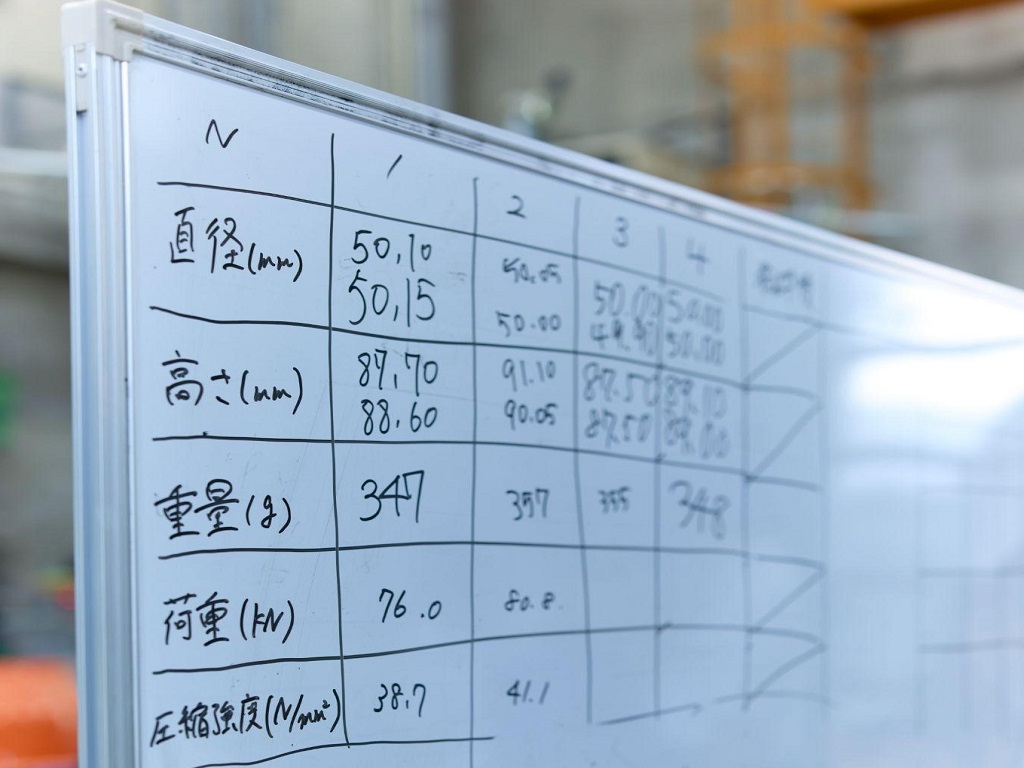 N 1 2 3 4
直径(mm) 50.10 50.05 50.00 50.00
50.15 50.00 50.00
高さ(mm) 87.70 91.10 87.50 89.10
88.60 90.05 87.50 89.00
重量(g) 347 357 355 348
荷重(kN) 76.0 80.8
圧縮強度(N/mm²) 38.7 41.1